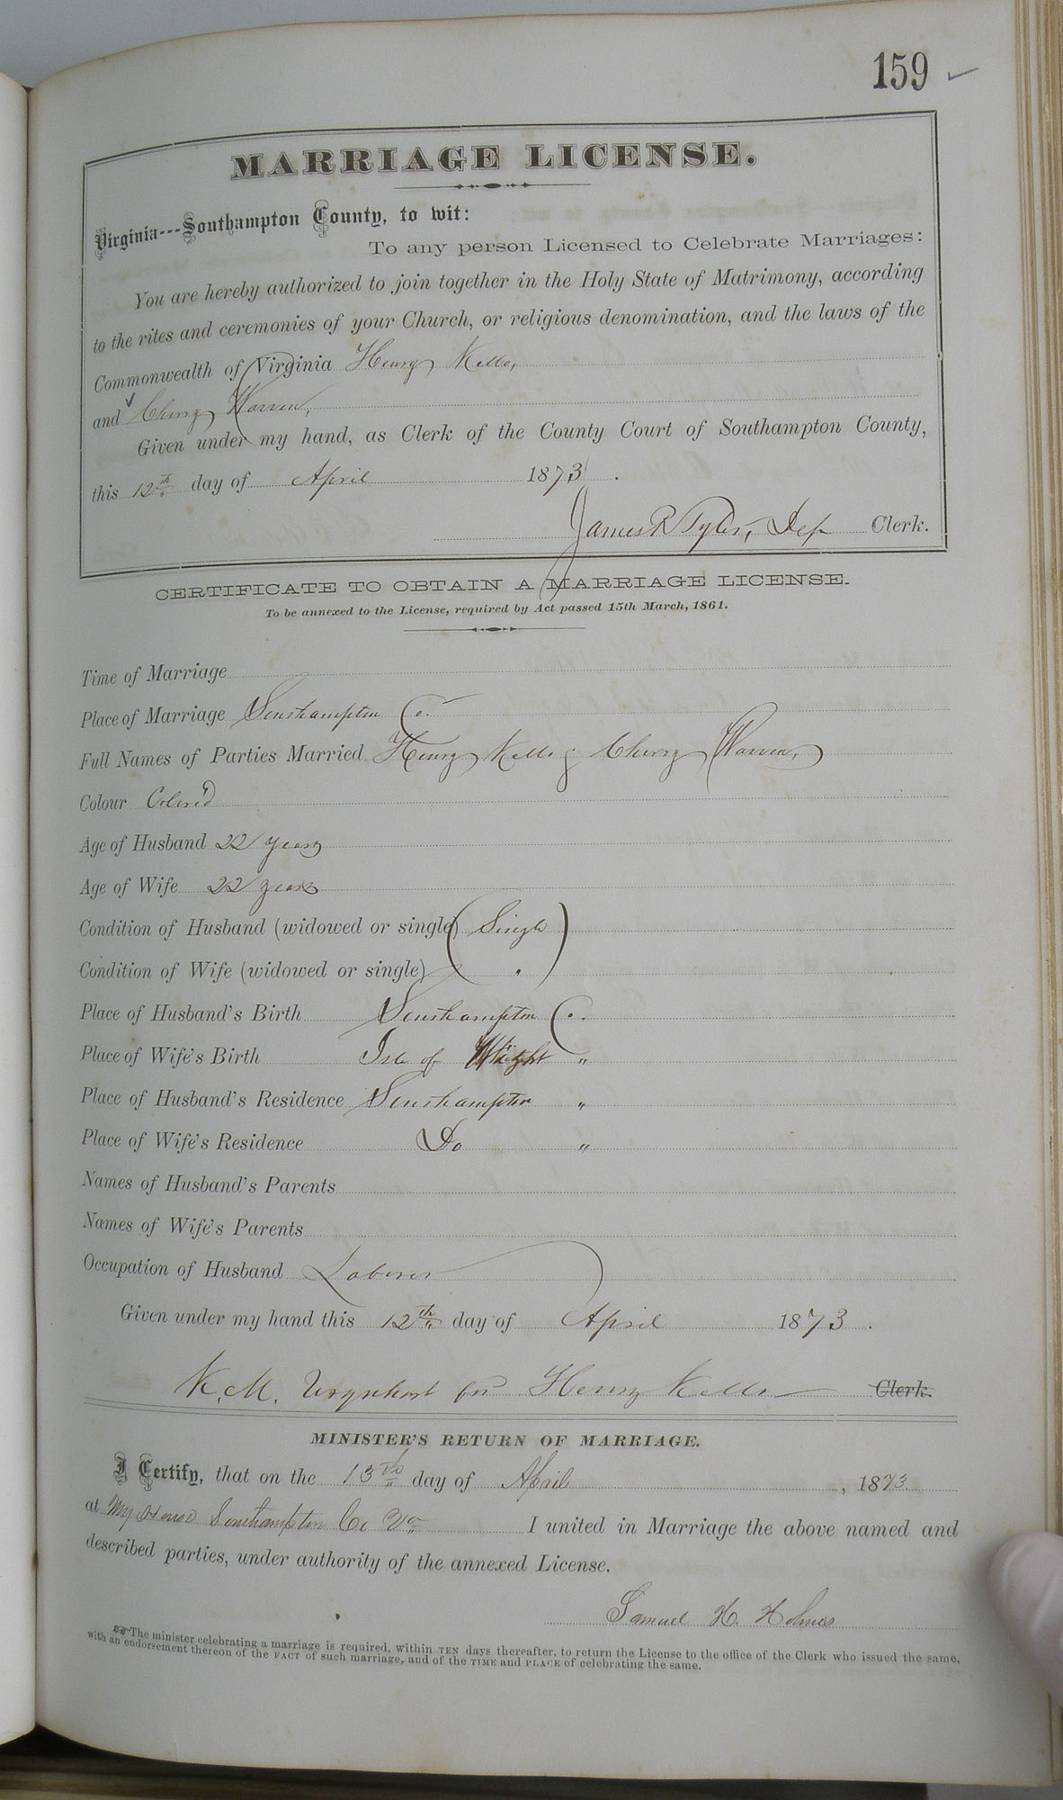 159 ✓
MARRIAGE LICENSE.
Virginia---Southampton County, to wit:
To any person Licensed to Celebrate Marriages:
You are hereby authorized to join together in the Holy State of Matrimony, according
to the rites and ceremonies of your Church, or religious denomination, and the laws of the
Commonwealth of Virginia Henry Kello,
and Cherry Warren,
Given under my hand, as Clerk of the County Court of Southampton County,
this 12th day of April 1873.
James R Tyler, Dep Clerk.
CERTIFICATE TO OBTAIN A MARRIAGE LICENSE.
To be annexed to the License, required by Act passed 15th March, 1861.
Time of Marriage
Place of Marriage Southampton Co.
Full Names of Parties Married Henry Kello & Cherry Warren,
Colour Colored
Age of Husband 22 years
Age of Wife 22 years
Condition of Husband (widowed or single) Single
Condition of Wife (widowed or single) "
Place of Husband's Birth Southampton Co.
Place of Wife's Birth Isle of Wight "
Place of Husband's Residence Southampton "
Place of Wife's Residence Do "
Names of Husband's Parents
Names of Wife's Parents
Occupation of Husband Laborer
Given under my hand this 12th day of April 1873.
Urquhart for Henry Kello Clerk.
MINISTER'S RETURN OF MARRIAGE.
I Certify, that on the 13th day of April, 1873
at My House Southampton Co Va I united in Marriage the above named and
described parties, under authority of the annexed License.
Samuel H. Holmes
The minister celebrating a marriage is required, within TEN days thereafter, to return the License to the office of the Clerk who issued the same,
with an endorsement thereon of the FACT of such marriage, and of the TIME and PLACE of celebrating the same.